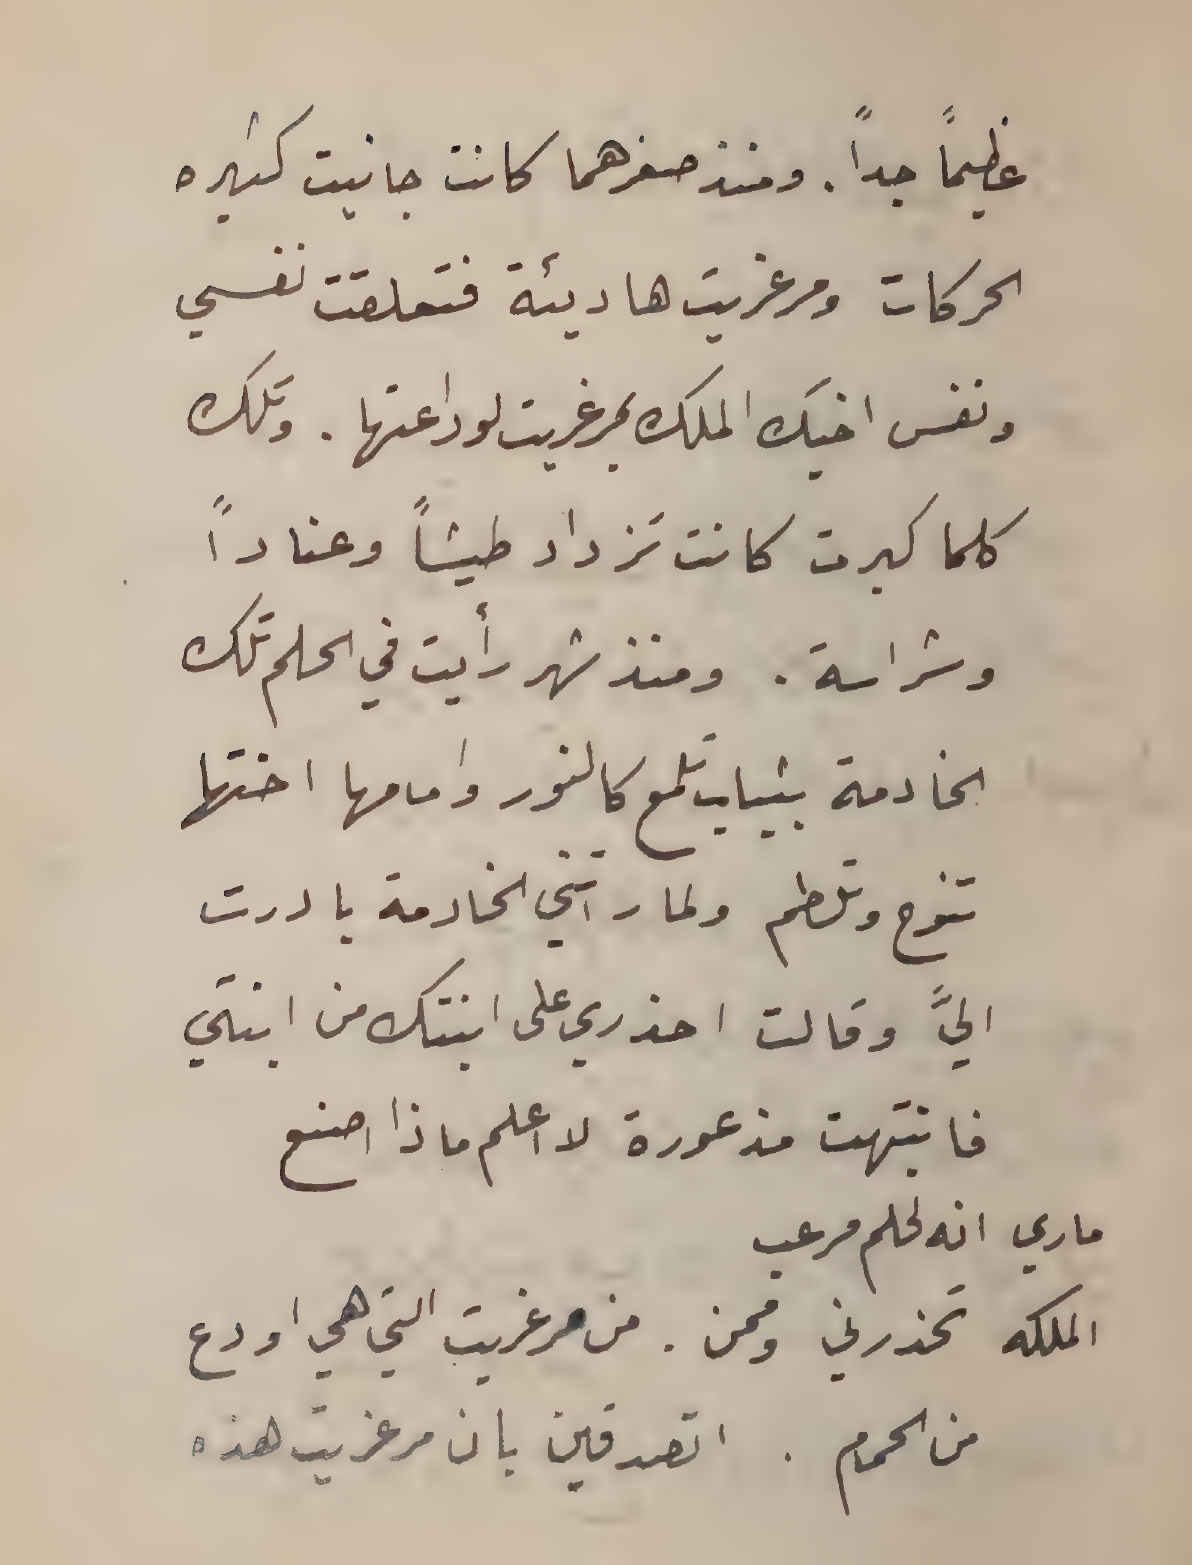 عظيماً جداً . ومنذ صغرهما كانت جانيت كثيره
الحركات ومرغريت هاديئة فتعلقت نفسي
ونفس اخيك الملك بمرغريت لوداعتها . وتلك
كلما كبرت كانت تزداد طيشاً وعناداً
وشراسة . ومنذ شهر رأيت في الحلم تلك
الخادمة بثياب تلمع كالنور وامامها اختها
تنوح وتلطم ولما راتني الخادمة بادرت
اليَّ وقالت احذري على ابنتك من ابنتي
فانتبهت مذعورة لا اعلم ماذا اصنع
ماري انه لحلم مرعب
الملكه تحذرني وممن . من مرغريت التي هي اودع
من الحمام . اتصدقين بان مرغريت هذه